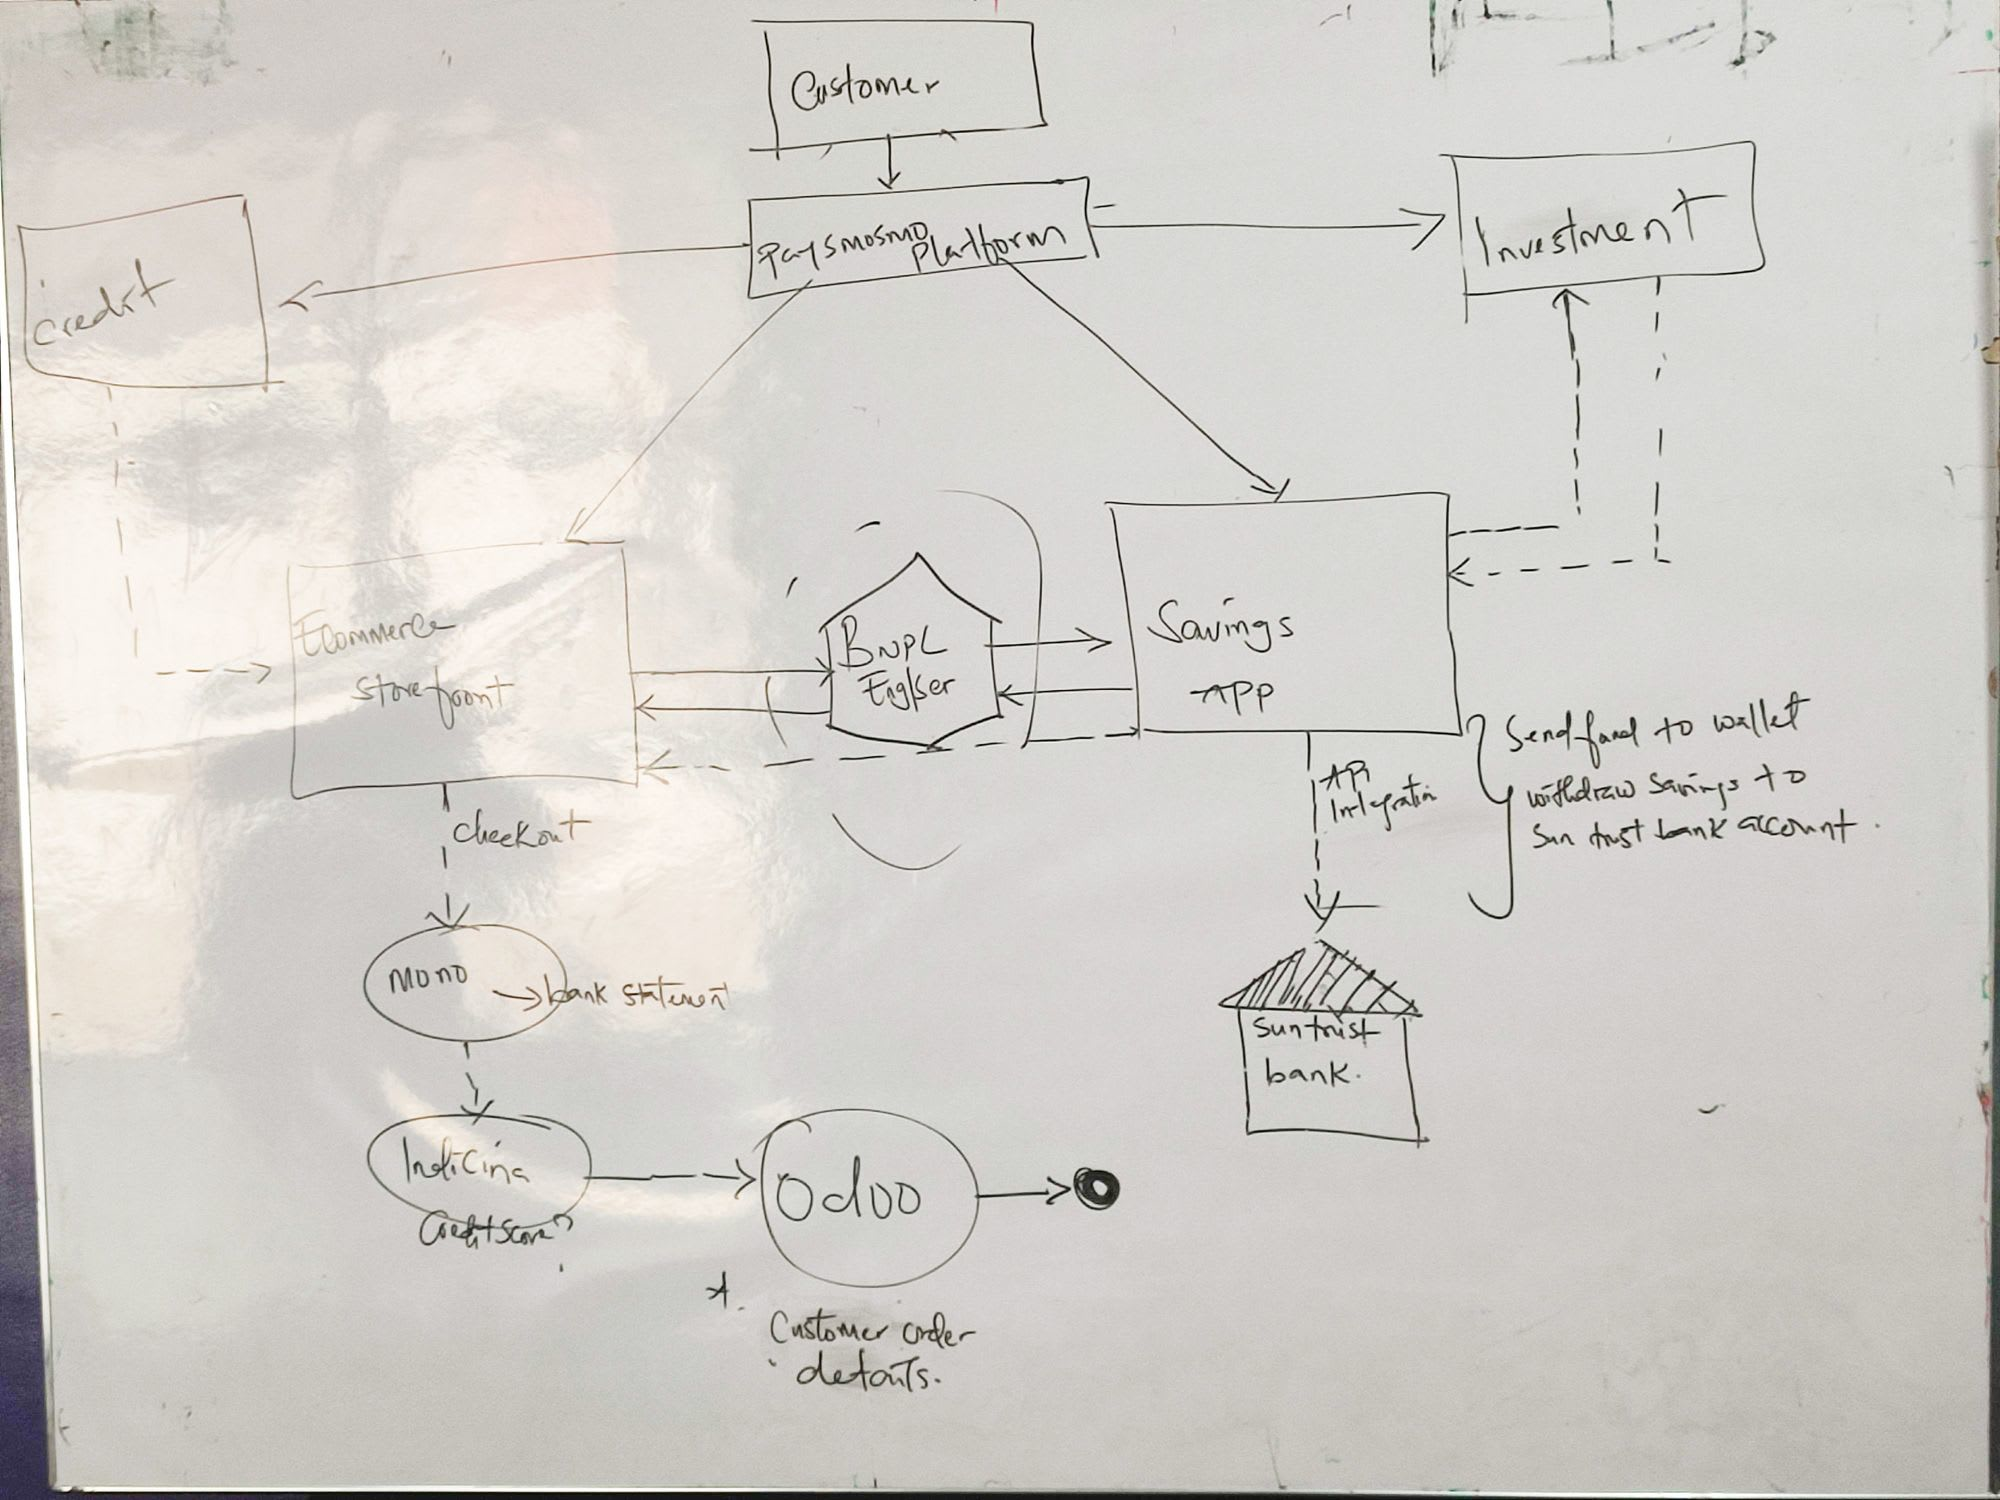 Customer
Paysmosmo
Platform
Investment
credit
Ecommerce
storefront
BNPL
Savings
APP
API
Integration
Send fund to wallet
withdraw savings to
Sun trust bank account.
checkout
mono
→ bank statement
Suntrust
bank.
Indicina
Credit score?
Odoo
*.
Customer order
details.